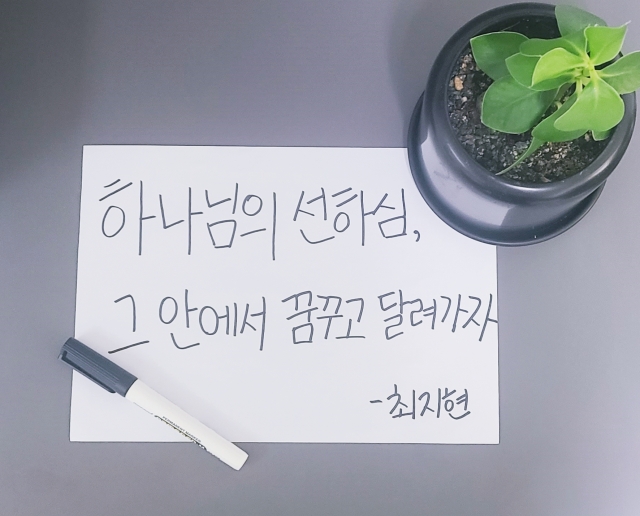 하나님의 선하심,
그 안에서 꿈꾸고 달려가자
-최지현